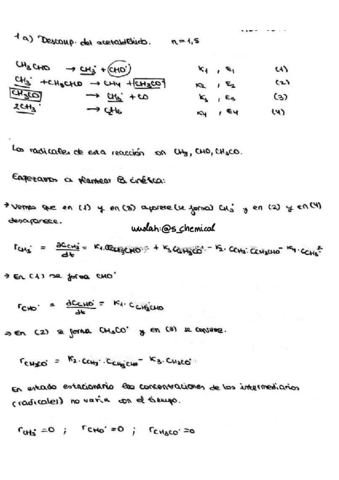 1 a) Descomp. del acetaldehído. n=1,5
CH3CHO → CH3· + CHO· K1, E1 (1)
CH3· + CH3CHO → CH4 + CH3CO· K2, E2 (2)
CH3CO· → CH3· + CO K3, E3 (3)
2CH3· → C2H6 K4, E4 (4)
Los radicales de esta reacción son CH3, CHO, CH3CO.
Empezamos a plantear la cinética:
→ Vemos que en (1) y en (3) aparece (se forma) CH3· y en (2) y en (4)
desaparece.
wuolah:@s_chemical
rCH3· = dCCH3·/dt = K1·CCH3CHO + K3·CCH3CO· - K2·CCH3·CCH3CHO - K4·CCH3·²
→ En (1) se forma CHO·
rCHO· = dCCHO·/dt = K1·CCH3CHO
→ En (2) se forma CH3CO· y en (3) se
rCH3CO· = K2·CCH3·CCH3CHO - K3·CCH3CO·
En estado estacionario las concentraciones de los intermediarios
(radicales) no varía con el tiempo.
rCH3·=0 ; rCHO·=0 ; rCH3CO·=0